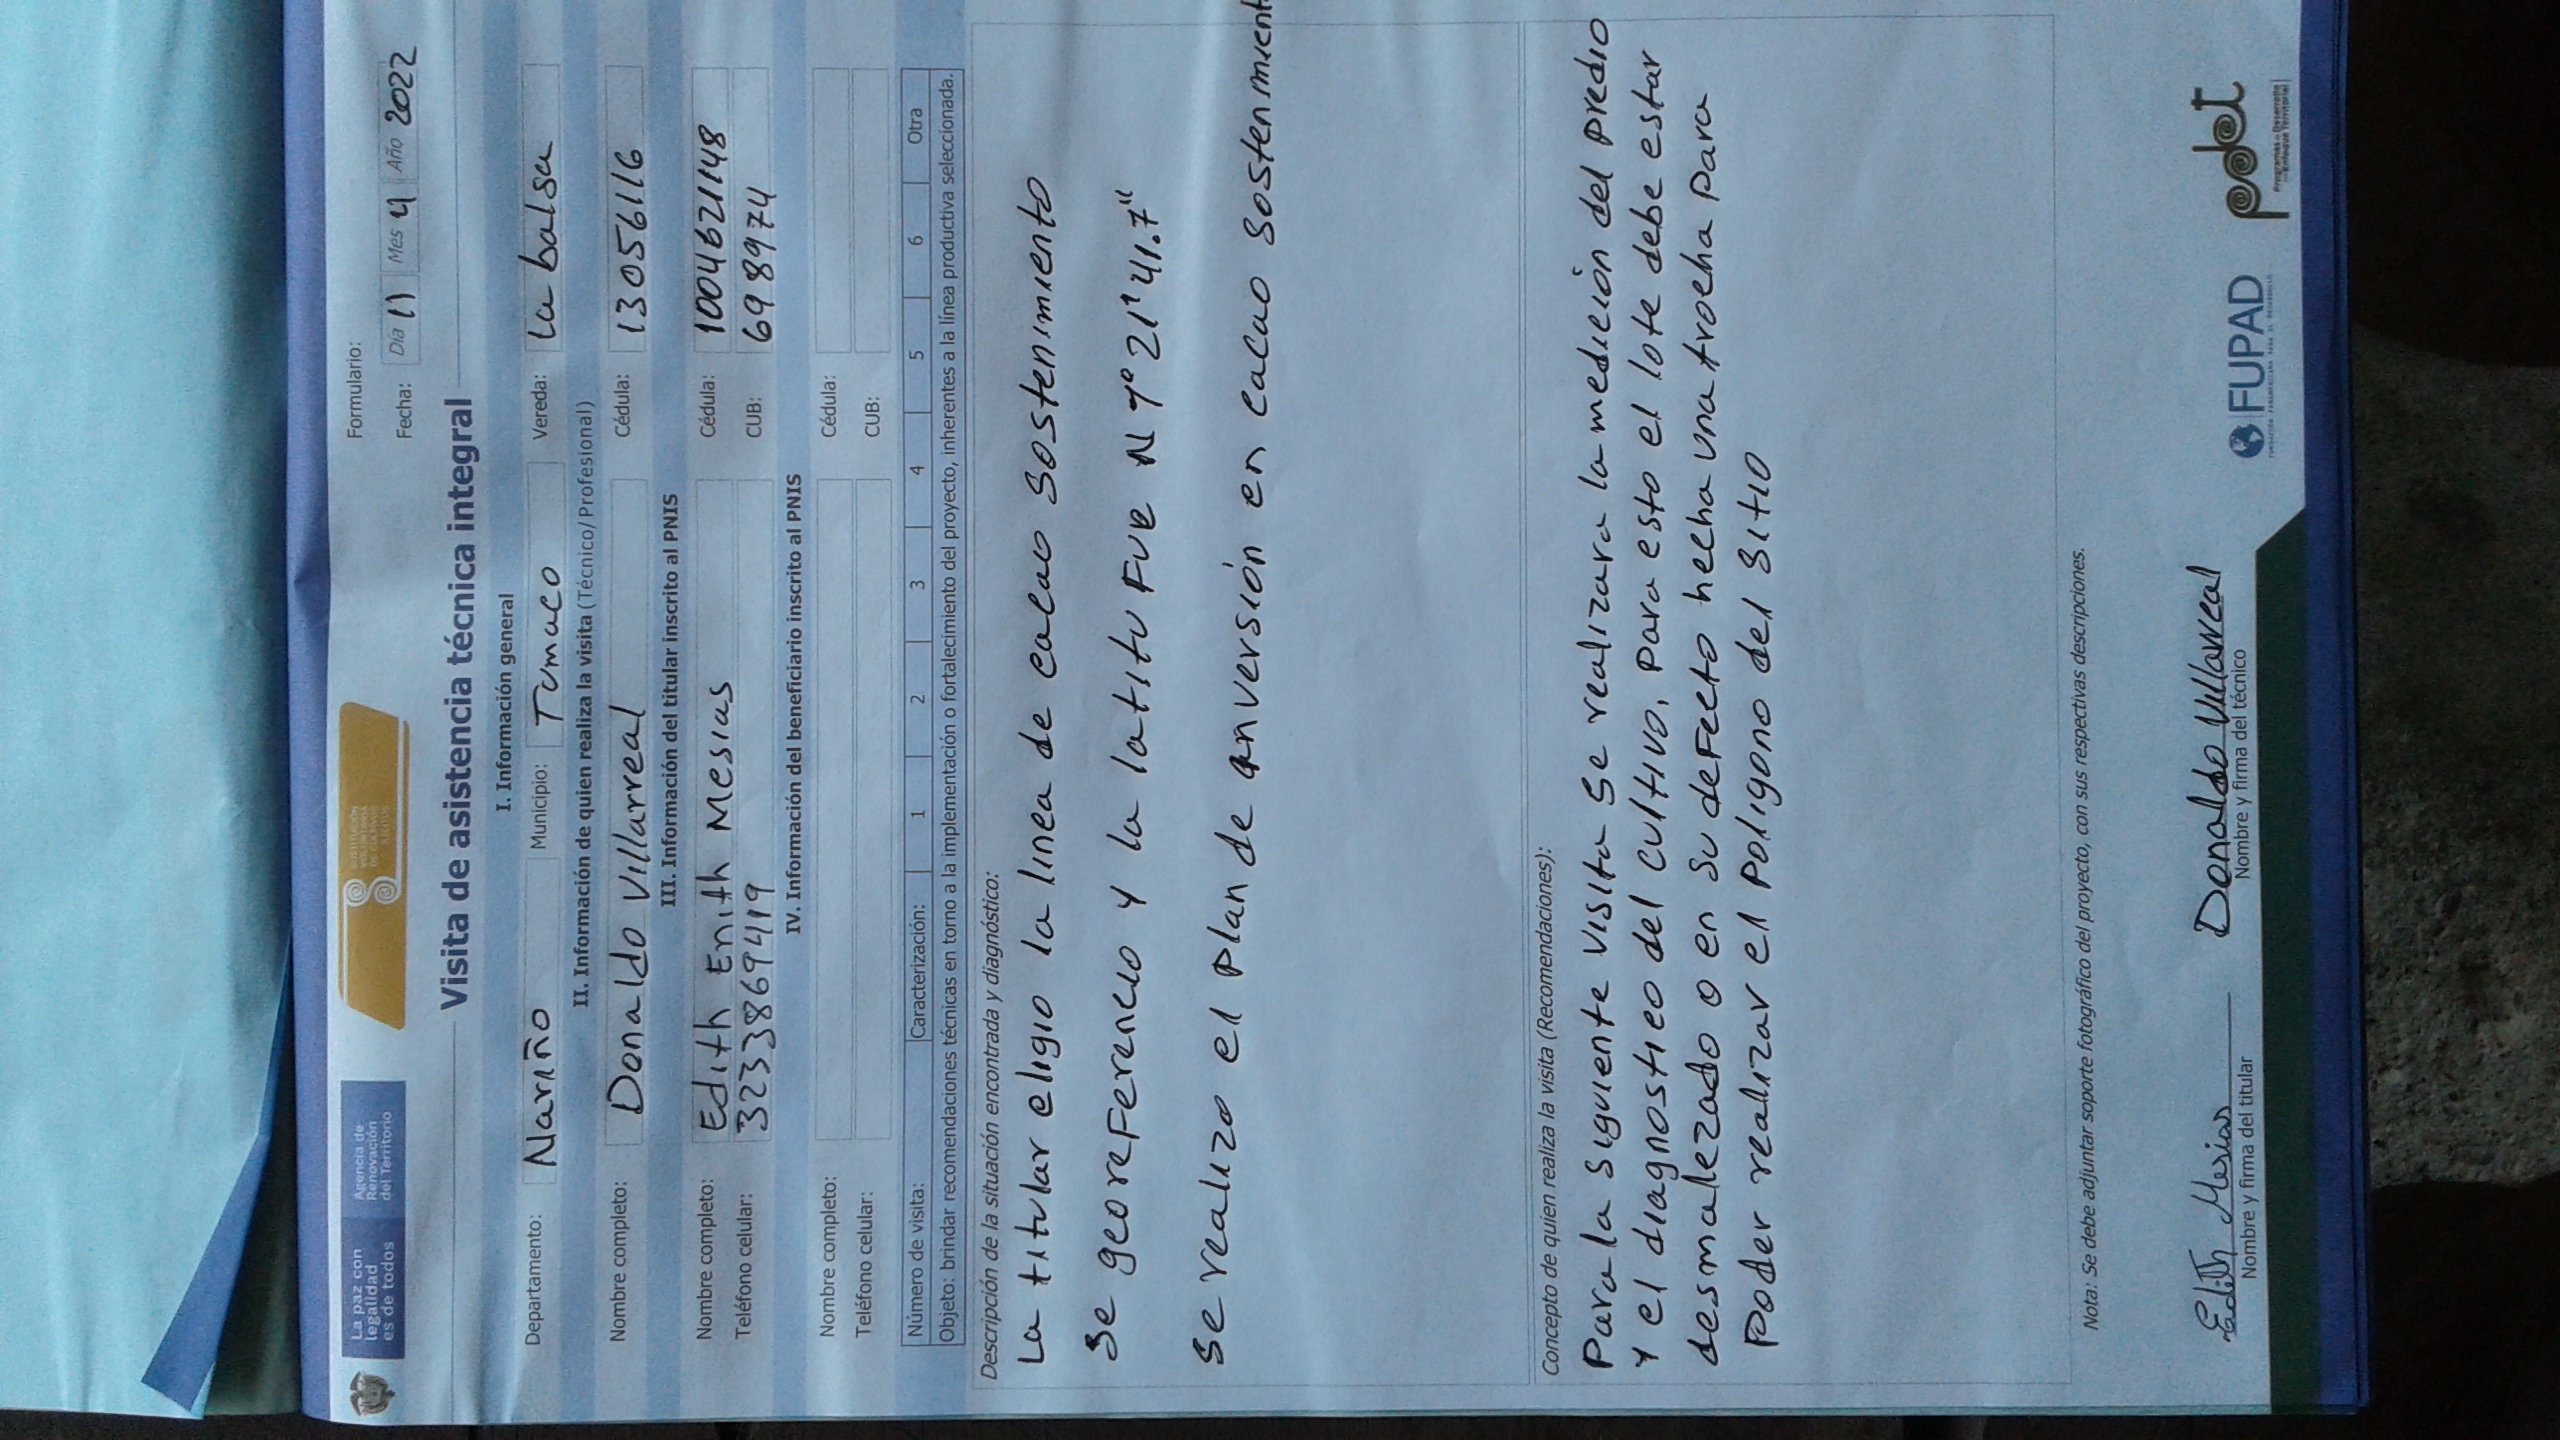 La paz con
legalidad
es de todos
Agencia de
Renovación
del Territorio
SUSTITUCIÓN
VOLUNTARIA
DE CULTIVOS
ILÍCITOS
Formulario:
Fecha: Día 11 Mes 4 Año 2022
Visita de asistencia técnica integral
I. Información general
Departamento: Nariño Municipio: Tumaco Vereda: La balsa
II. Información de quien realiza la visita (Técnico/Profesional)
Nombre completo: Donaldo Villarreal Cédula: 13056116
III. Información del titular inscrito al PNIS
Nombre completo: Edith Enith Mesias Cédula: 1004621148
Teléfono celular: 3233869419 CUB: 698974
IV. Información del beneficiario inscrito al PNIS
Nombre completo: Cédula:
Teléfono celular: CUB:
Número de visita: Caracterización: 1 2 3 4 5 6 Otra
Objeto: brindar recomendaciones técnicas en torno a la implementación o fortalecimiento del proyecto, inherentes a la línea productiva seleccionada.
Descripción de la situación encontrada y diagnóstico:
La titular eligio la linea de cacao sostenimiento
Se georeferencio y la latitu fue N 1° 21' 41.7"
Se realizo el plan de inversión en cacao sostenmient
Concepto de quien realiza la visita (Recomendaciones):
Para la siguiente visita se realizara la medición del predio
y el diagnostico del cultivo, para esto el lote debe estar
desmalezado o en su defecto hecha una trocha para
poder realizar el poligono del sitio
Nota: Se debe adjuntar soporte fotográfico del proyecto, con sus respectivas descripciones.
Edith Mesias
Nombre y firma del titular
Donaldo Villarreal
Nombre y firma del técnico
FUPAD
FUNDACIÓN PANAMERICANA PARA EL DESARROLLO
pdet
Programas de Desarrollo
con Enfoque Territorial